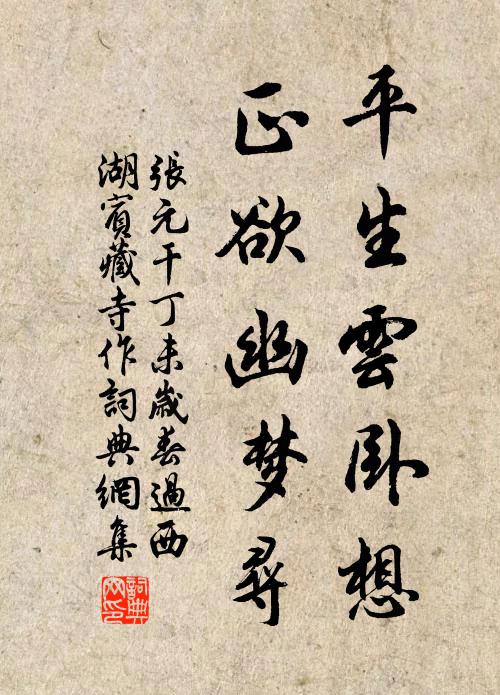 平生雲卧想
正欲幽梦尋
張元干丁未歲春過西
湖賓藏寺作詞典網集
詞典网印